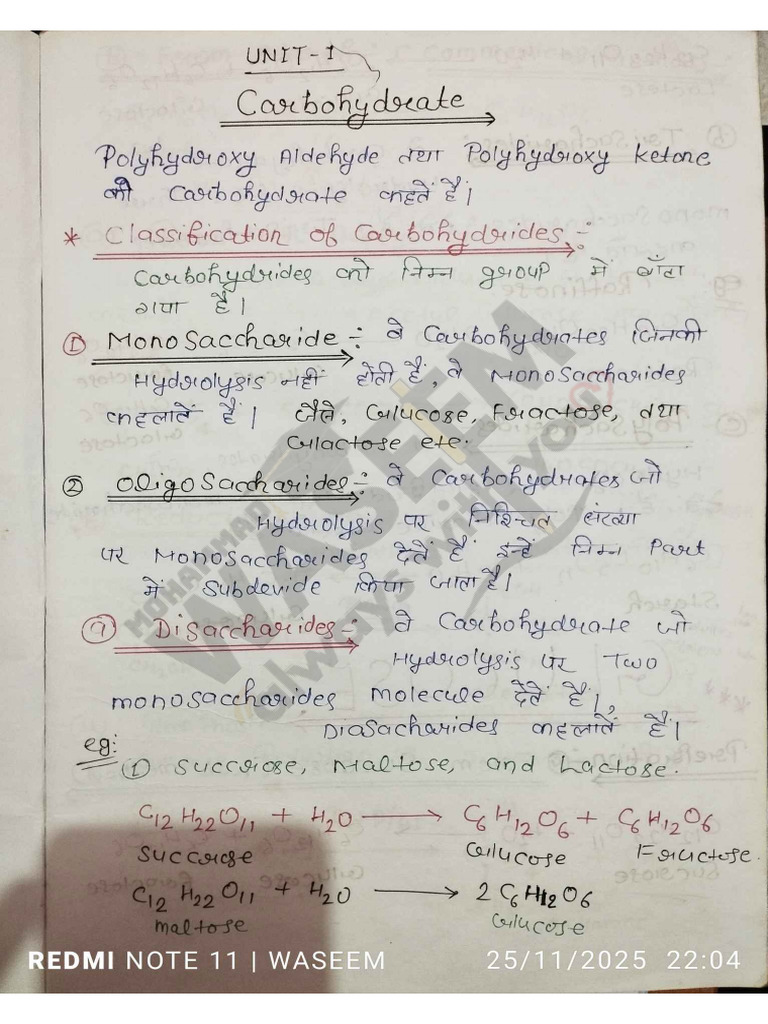 UNIT-1
Carbohydrate
Polyhydroxy Aldehyde तथा Polyhydroxy Ketone
को Carbohydrate कहतें हैं।
* Classification of Carbohydrides :-
Carbohydrides को निम्न group में बाँटा
गया है।
① MonoSaccharide :- वे Carbohydrates जिनकी
Hydrolysis नहीं होती हैं, वे MonoSaccharides
कहलातें हैं। जैसे, Glucose, Fractose, तथा
Glactose etc.
② OligoSaccharides :- वे Carbohydrates जो
Hydrolysis पर निश्चित संख्या
पर MonoSaccharides देतें हैं इन्हें निम्न Part
में Subdevide किया जाता है।
ⓐ Disaccharides :- वे Carbohydrate जो
Hydrolysis पर Two
monosaccharides Molecule देतें हैं।,
Diasacharides कहलातें हैं।
eg:
① Succrose, Maltose, and Lactose.
C12 H22 O11 + H2O ⟶ C6 H12 O6 + C6 H12 O6
Succrose Glucose Fructose.
C12 H22 O11 + H2O ⟶ 2 C6 H12 O6
maltose Glucose
MOHAMMAD
WASEEM
always with you
REDMI NOTE 11 | WASEEM 25/11/2025 22:04